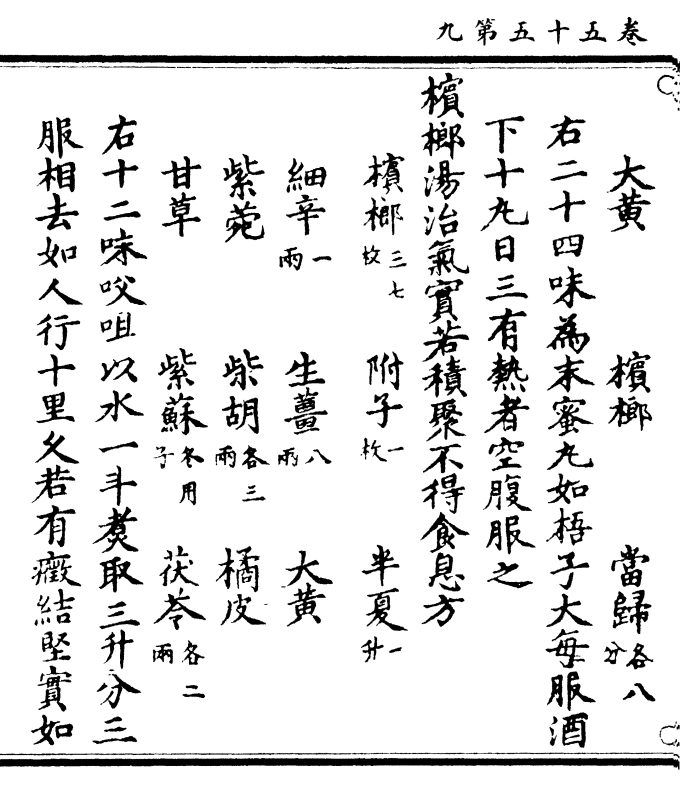 卷五十五第九
大黃　檳榔　當歸各八分
右二十四味為末蜜丸如梧子大每服酒
下十丸日三有熱者空腹服之
檳榔湯治氣實若積聚不得食息方
檳榔三七枚　附子一枚　半夏一升
細辛一兩　生薑八兩　大黃
紫菀　柴胡各三兩　橘皮
甘草　紫蘇冬用子　茯苓各二兩
右十二味㕮咀以水一斗煑取三升分三
服相去如人行十里久若有癥結堅實如